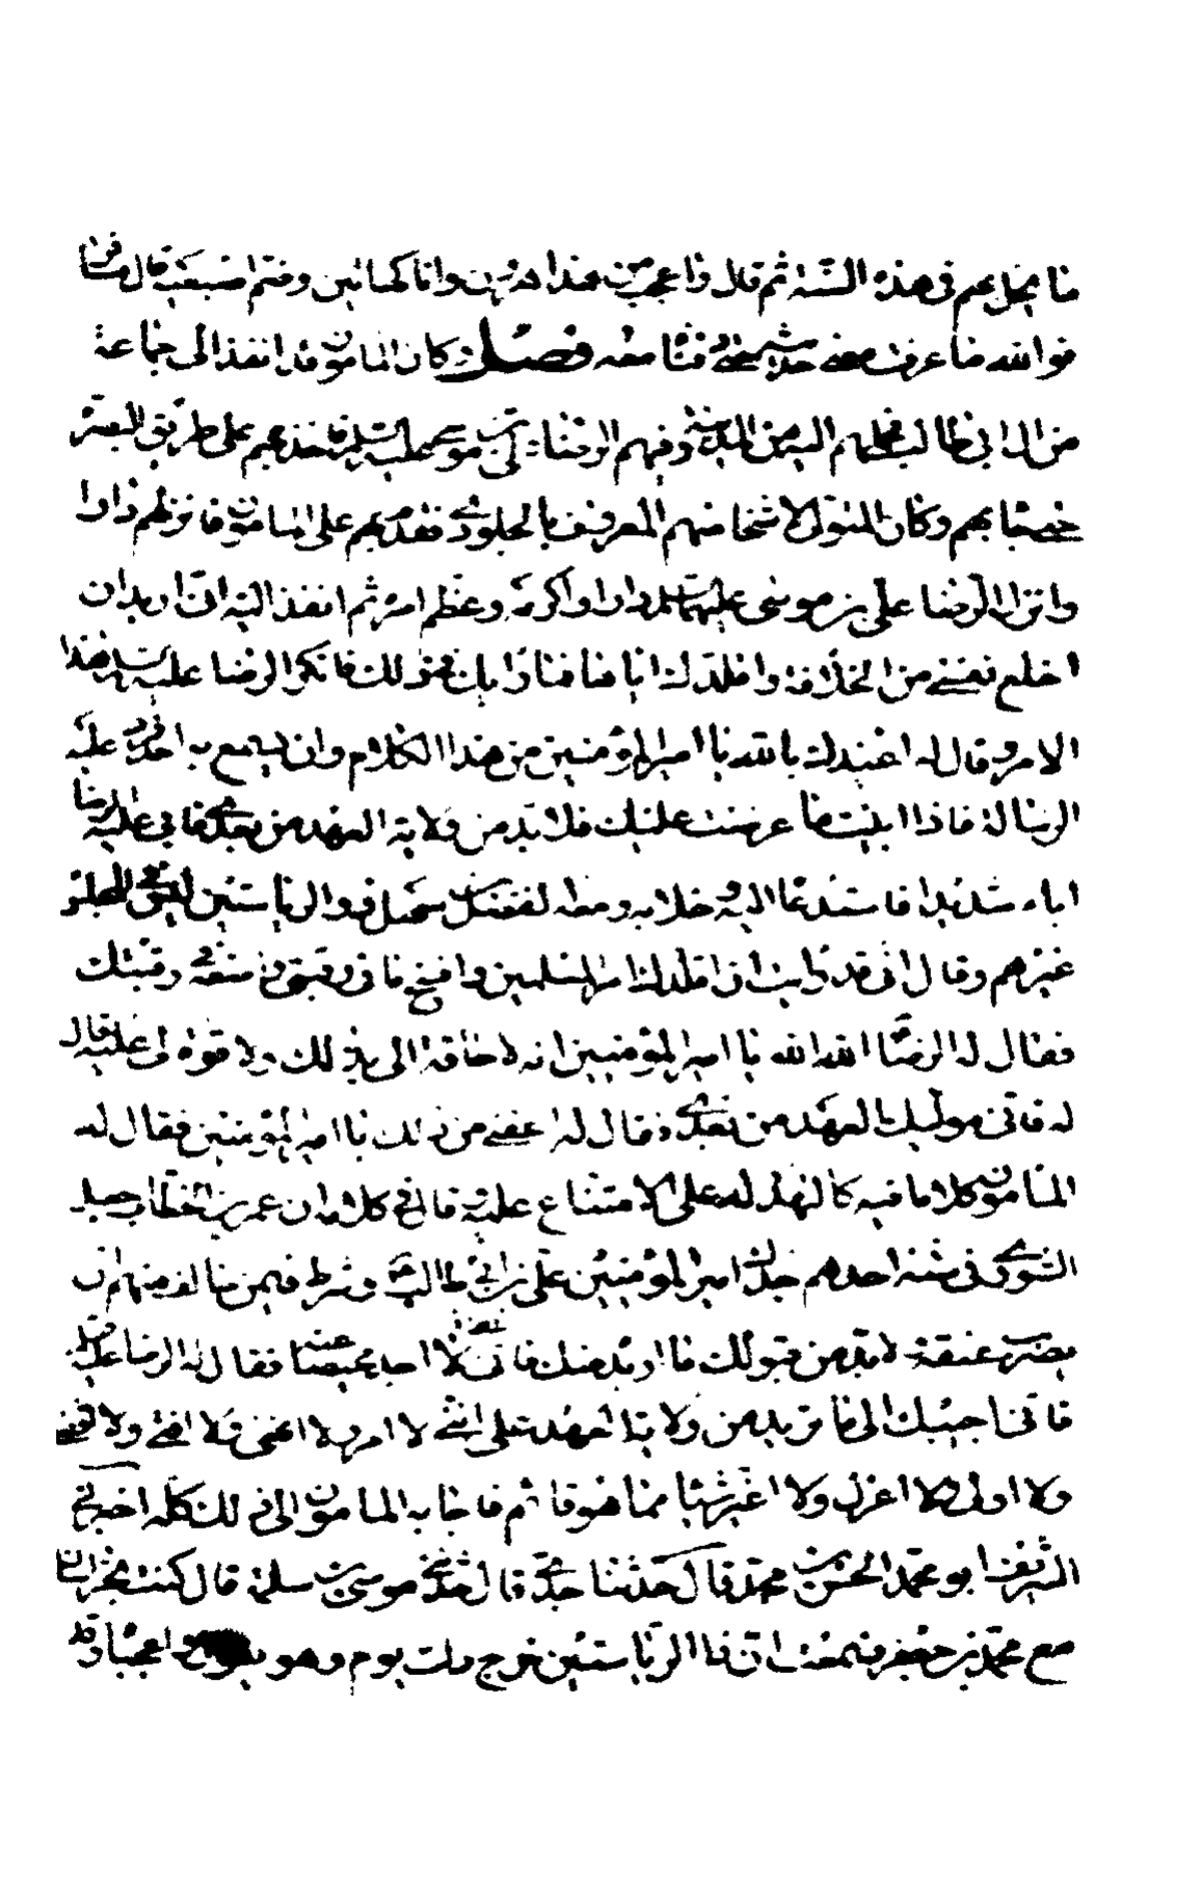 ما يحل بهم في هذه السنة ثم قال واعجب من هذا هرون وانا كهاتين وضم اصبعيه قال مسافر
فوالله ما عرفت معنى حديثه حتى دفناه معه فصل وكان المامون قد انفذ الى جماعة
من ال ابي طالب فحملهم اليه من المدينة وفيهم الرضا علي بن موسى عليهما السلم فاخذ بهم على طريق البصرة
حتى جاءه بهم وكان المتولى لاشخاصهم المعروف بالجلودي فقدم بهم على المامون فانزلهم دارا
وانزل الرضا علي بن موسى عليهما السلم دارا واكرمه وعظم امره ثم انفذ اليه اني اريد ان
اخلع نفسي من الخلافة واقلدك اياها فما رايك في ذلك فانكر الرضا عليه السلم هذا
الامر وقال له اعيذك بالله يا امير المؤمنين من هذا الكلام وان يسمع به احد فرد عليه
الرسالة فاذا ابيت ما عرضت عليك فلا بد من ولاية العهد من بعدي فابى عليه الرضا
اباء شديدا فاستدعاه اليه وخلا به ومعه الفضل بن سهل ذو الرياستين ليس في المجلس
غيرهم وقال اني قد رايت ان اقلدك امر المسلمين وافسخ ما في رقبتي واضعه في رقبتك
فقال له الرضا الله الله يا امير المؤمنين انه لا طاقة لي بذلك ولا قوة لي عليه قال
له فاني موليك العهد من بعدي فقال له اعفني من ذلك يا امير المؤمنين فقال له
المامون كلاما فيه كالتهدد له على الامتناع عليه قال في كلامه ان عمر بن الخطاب جعل
الشورى في ستة احدهم جدك امير المؤمنين علي بن ابي طالب وشرط فيمن خالف منهم ان
يضرب عنقه ولا بد من قبولك ما اريد منك فاني لا اجد محيصا عنه فقال له الرضا عليه السلم
فاني اجيبك الى ما تريد من ولاية العهد على انني لا امر ولا انهى ولا افتي ولا اقضي
ولا اولى ولا اعزل ولا اغير شيئا مما هو قائم فاجابه المامون الى ذلك كله اخبرني
الشريف ابو محمد الحسن بن محمد قال حدثنا جدي قال حدثني موسى بن سلمة قال كنت بخراسان
مع محمد بن جعفر فسمعت ان ذا الرياستين خرج ذات يوم وهو يقول واعجباه وقد